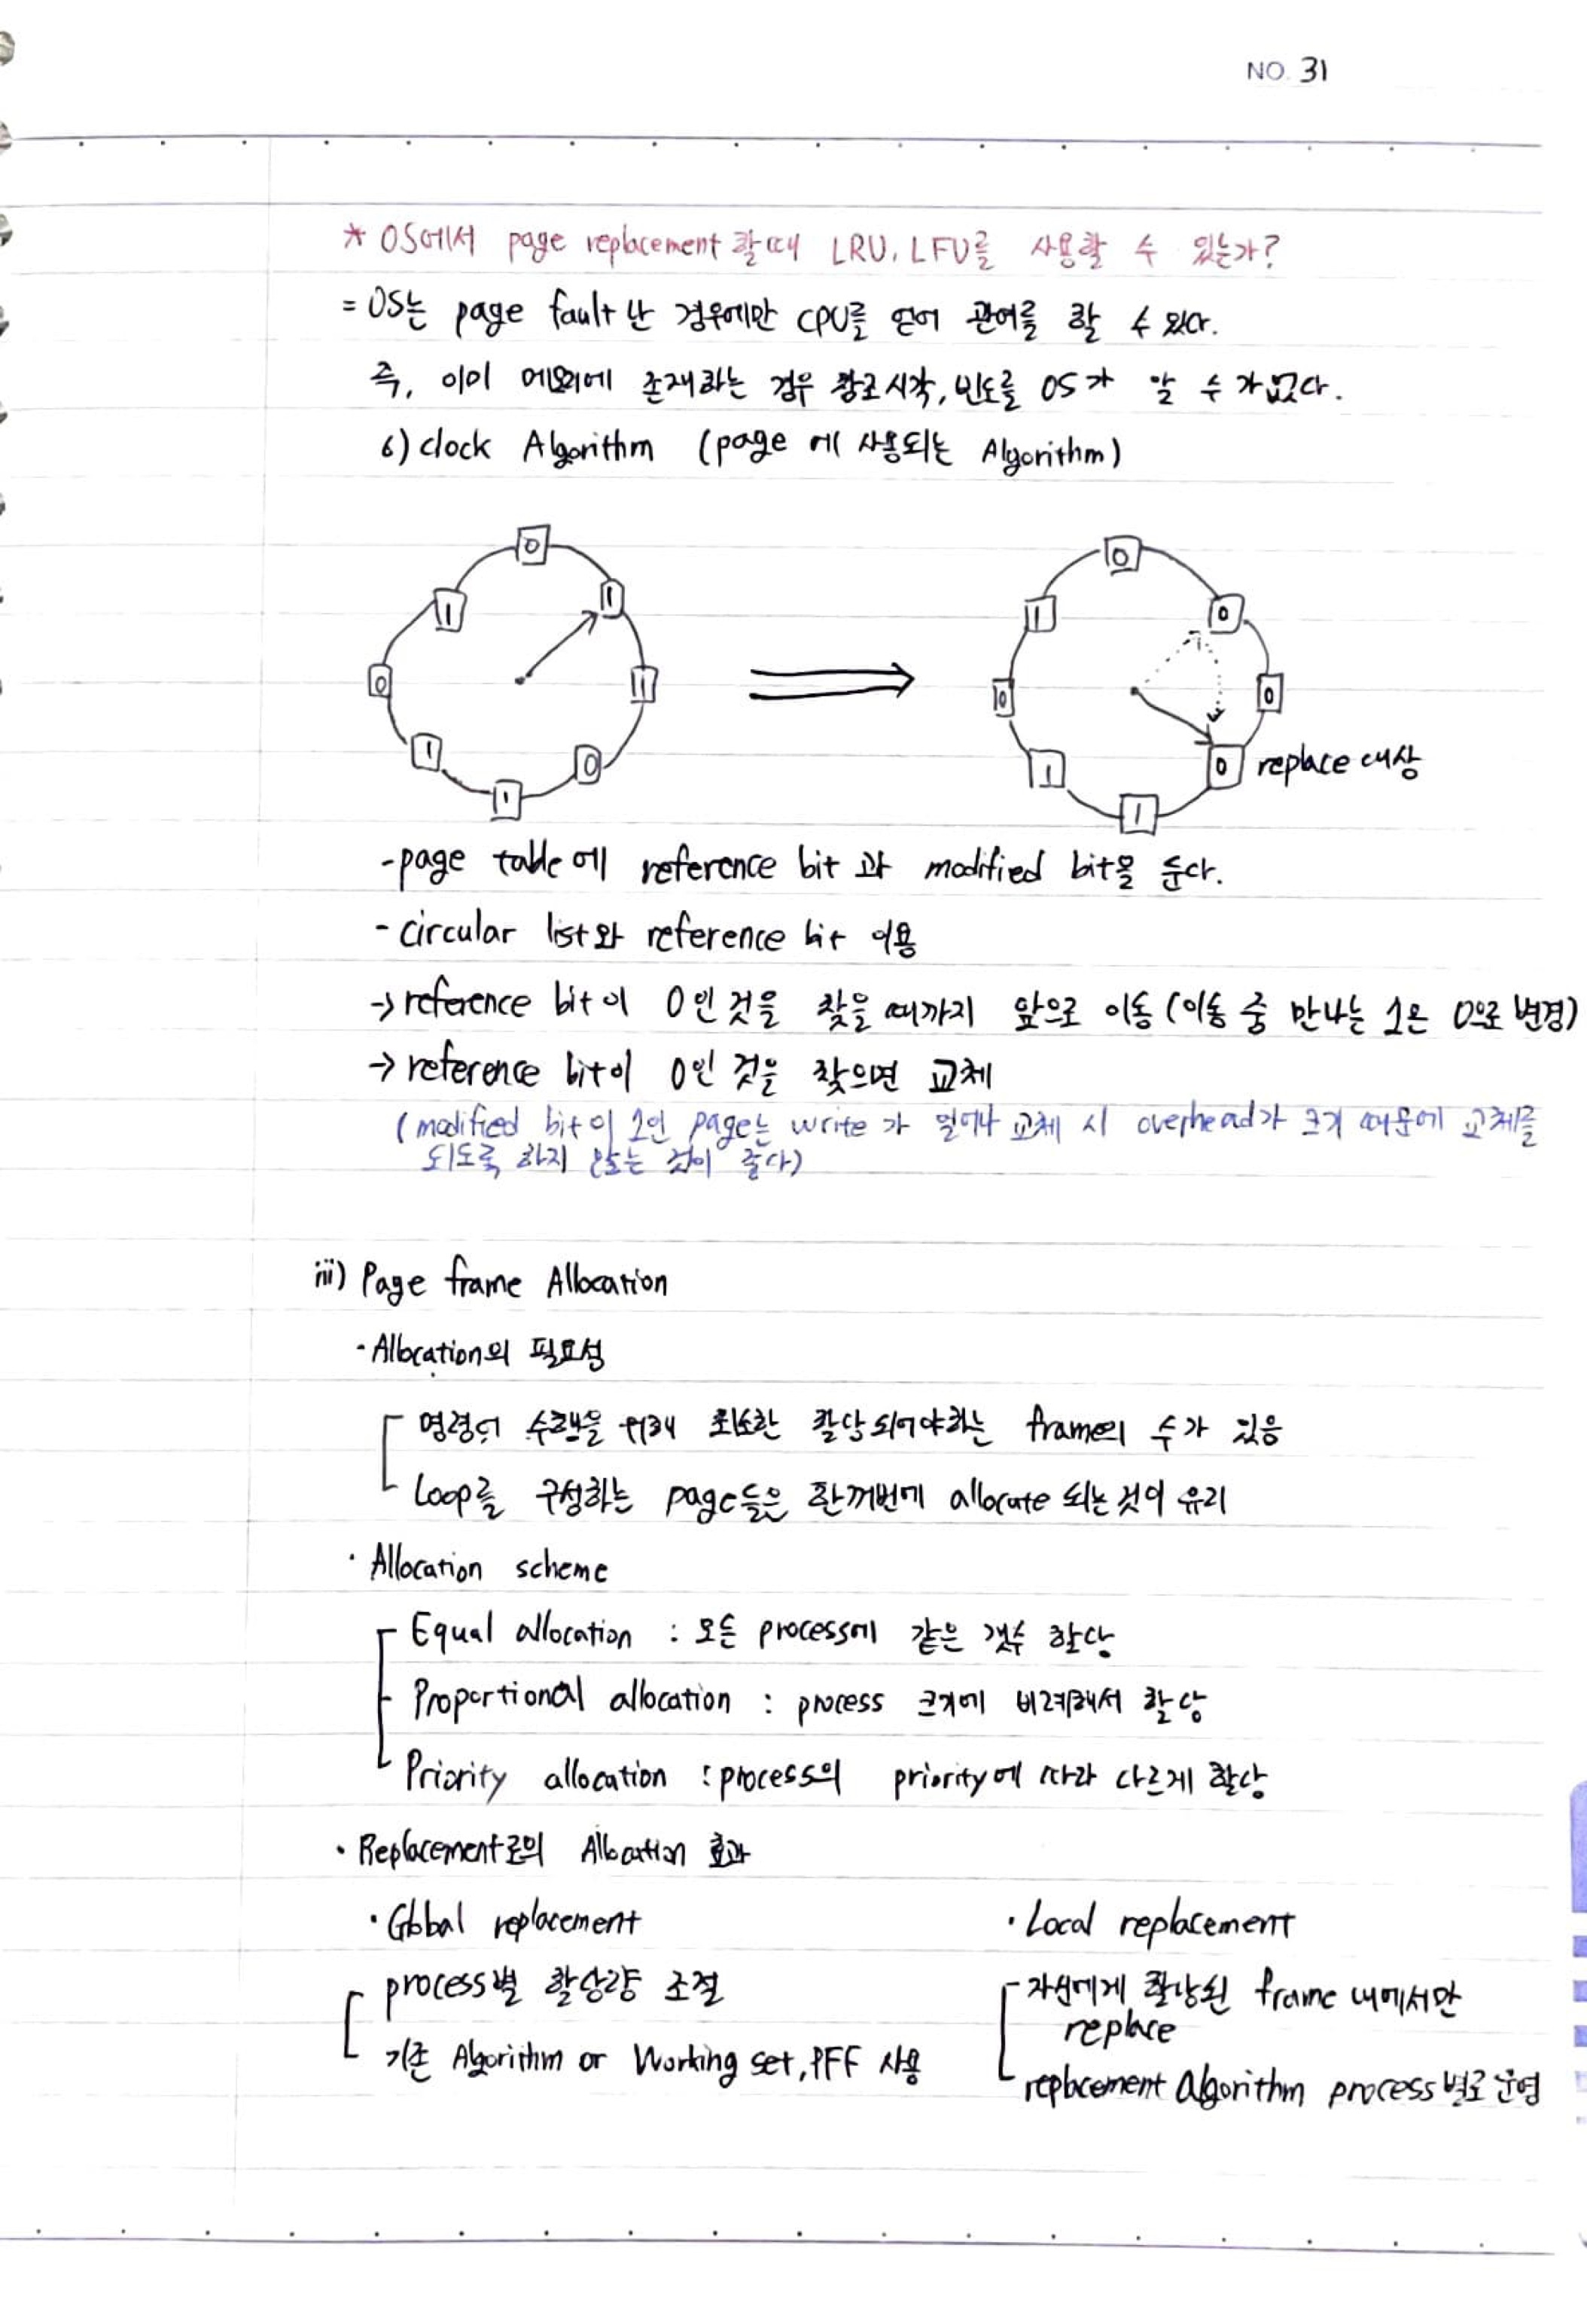 NO. 31
* OS에서 page replacement 할때 LRU, LFU를 사용할 수 있는가?
= OS는 page fault 난 경우에만 CPU를 얻어 관여를 할 수 있다.
즉, 이미 메모리에 존재하는 경우 참조시각, 빈도를 OS가 알 수가 없다.
6) clock Algorithm (page에 사용되는 Algorithm)
0
0
1
1
1
0
0
0
1
0
0
0
1
1
1
1
replace 대상
-page table에 reference bit과 modified bit을 둔다.
- circular list와 reference bit 이용
→ reference bit이 0인 것을 찾을 때까지 앞으로 이동 (이동 중 만나는 1은 0으로 변경)
→ reference bit이 0인 것을 찾으면 교체
(modified bit이 1인 page는 write가 일어나 교체 시 overhead가 크기 때문에 교체를
되도록 하지 않는 것이 좋다)
iii) Page frame Allocation
· Allocation의 필요성
명령어 수행을 위해 최소한 할당되어야하는 frame의 수가 있음
Loop를 구성하는 page들은 한꺼번에 allocate 되는 것이 유리
· Allocation scheme
Equal allocation : 모든 process에 같은 갯수 할당
Proportional allocation : process 크기에 비례해서 할당
Priority allocation : process의 priority에 따라 다르게 할당
· Replacement로의 Allocation 효과
· Global replacement
process별 할당량 조절
기존 Algorithm or Working set, PFF 사용
· Local replacement
자신에게 할당된 frame 내에서만
replace
replacement Algorithm process별로 운영